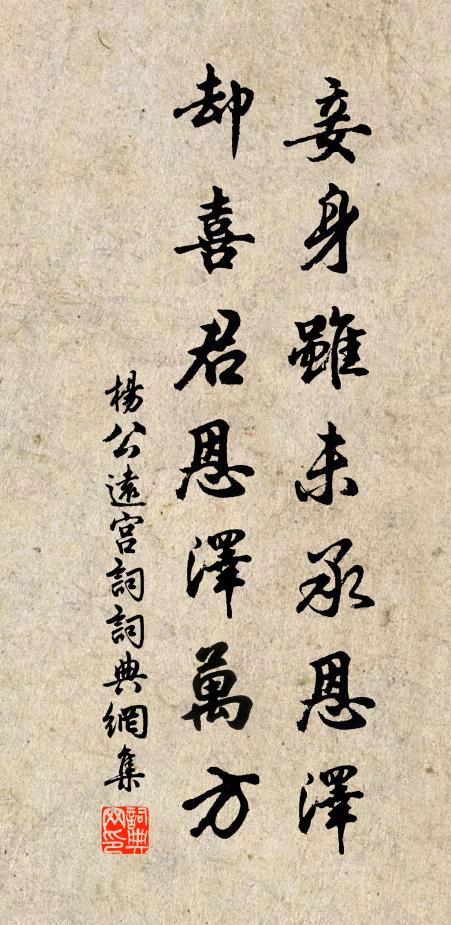 妾身雖未承恩澤
却喜君恩澤萬方
楊公遠宮詞詞典網集
詞典网印